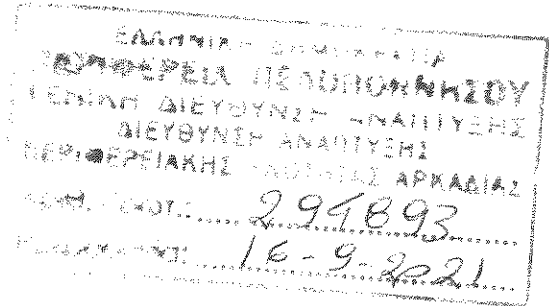 ΕΛΛΗΝΙΚΗ ΔΗΜΟΚΡΑΤΙΑ
ΠΕΡΙΦΕΡΕΙΑ ΠΕΛΟΠΟΝΝΗΣΟΥ
ΓΕΝΙΚΗ ΔΙΕΥΘΥΝΣΗ ΑΝΑΠΤΥΞΗΣ
ΔΙΕΥΘΥΝΣΗ ΑΝΑΠΤΥΞΗΣ
ΠΕΡΙΦΕΡΕΙΑΚΗΣ ΕΝΟΤΗΤΑΣ ΑΡΚΑΔΙΑΣ
16-9-2021